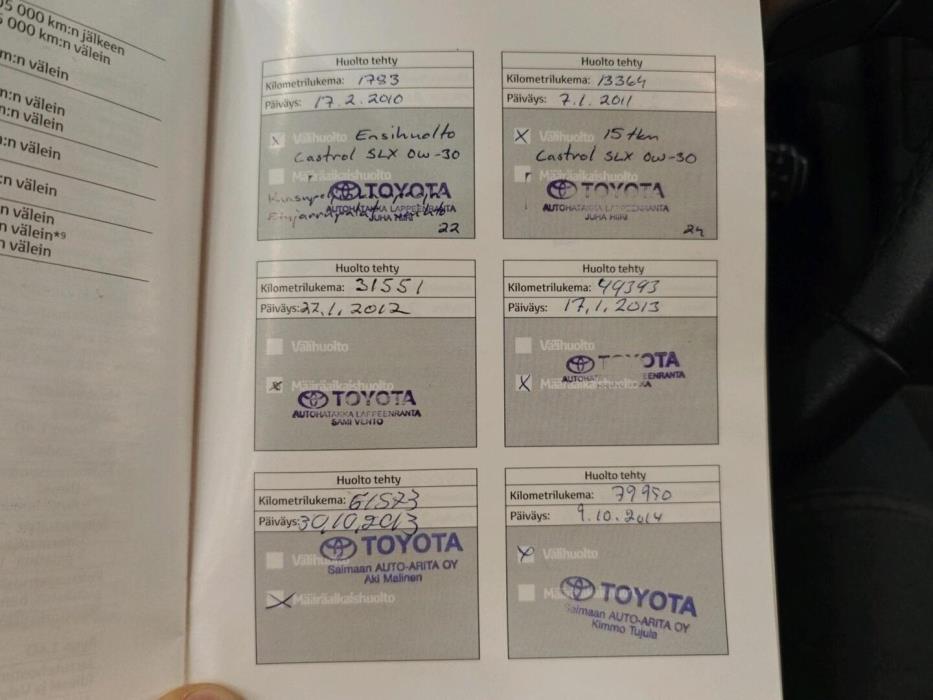 05 000 km:n jälkeen
5 000 km:n välein
m:n välein
n:n välein
m:n välein
n:n välein
:n välein
n välein
n välein*9
n välein
Huolto tehty
Kilometrilukema: 1783
Päiväys: 17.2.2010
Välihuolto Ensihuolto
Castrol SLX 0w-30
Määräaikaishuolto
TOYOTA
AUTOHATAKKA LAPPEENRANTA
JUHA
22
Huolto tehty
Kilometrilukema: 13364
Päiväys: 7.1.2011
Välihuolto 15 tkm
Castrol SLX 0w-30
Määräaikaishuolto
TOYOTA
AUTOHATAKKA LAPPEENRANTA
JUHA
24
Huolto tehty
Kilometrilukema: 31551
Päiväys: 27.1.2012
Välihuolto
Määräaikaishuolto
TOYOTA
AUTOHATAKKA LAPPEENRANTA
SAMI VENTO
Huolto tehty
Kilometrilukema: 49393
Päiväys: 17.1.2013
Välihuolto
Määräaikaishuolto
TOYOTA
Huolto tehty
Kilometrilukema: 61573
Päiväys: 30.10.2013
Välihuolto
TOYOTA
Saimaan AUTO-ARITA OY
Aki Malinen
Määräaikaishuolto
Huolto tehty
Kilometrilukema: 79950
Päiväys: 9.10.2014
Välihuolto
TOYOTA
Saimaan AUTO-ARITA OY
Kimmo Tujula